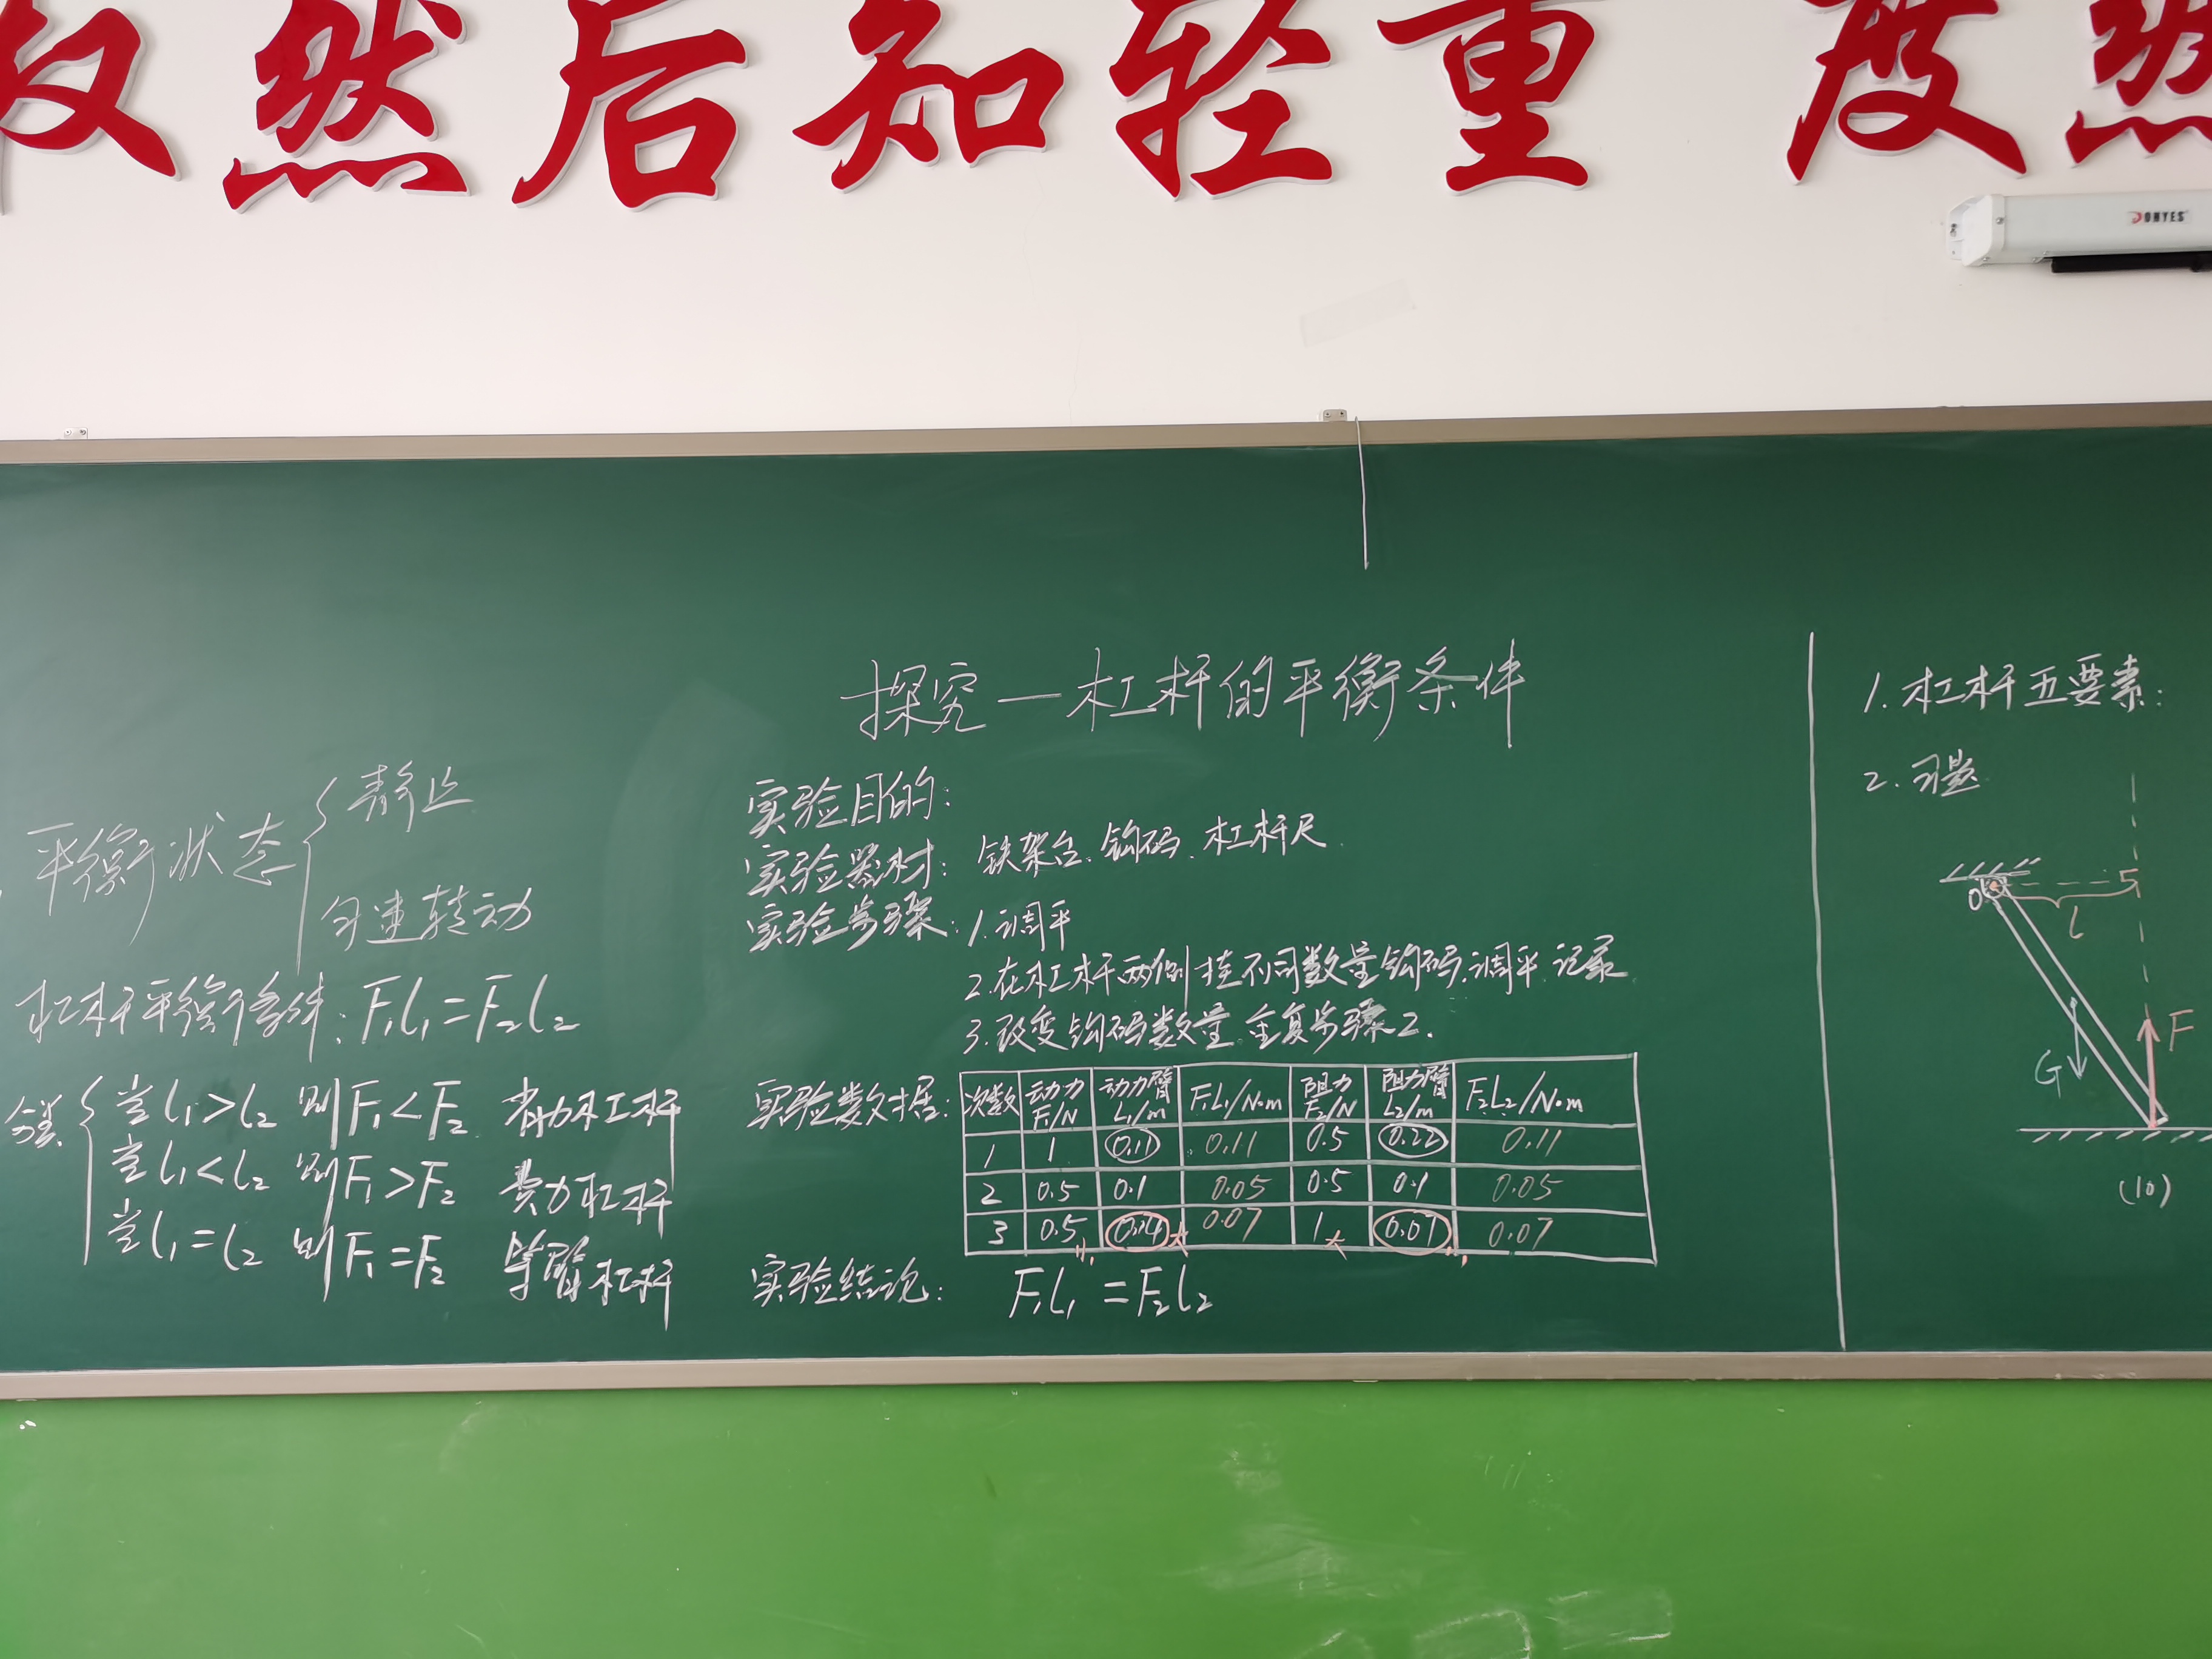 权然后知轻重 度然
DONYES
探究一杠杆的平衡条件
平衡状态
静止
匀速转动
杠杆平衡条件: F₁l₁=F₂l₂
分类
当l₁>l₂ 则F₁<F₂ 省力杠杆
当l₁<l₂ 则F₁>F₂ 费力杠杆
当l₁=l₂ 则F₁=F₂ 等臂杠杆
实验目的:
实验器材: 铁架台.钩码.杠杆尺.
实验步骤: 1.调平
2.在杠杆两侧挂不同数量钩码.调平.记录
3.改变钩码数量.重复步骤2.
实验数据:
次数 动力F₁/N 动力臂L₁/m F₁L₁/N·m 阻力F₂/N 阻力臂L₂/m F₂L₂/N·m
1 1 0.11 0.11 0.5 0.22 0.11
2 0.5 0.1 0.05 0.5 0.1 0.05
3 0.5 0.14 大 0.07 1 大 0.07 0.07
实验结论: F₁l₁=F₂l₂
1.杠杆五要素:
2.习题
O
l
G
F
(10)